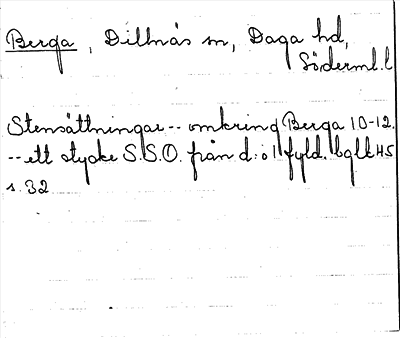 Berga, Dillnäs sn, Daga hd,
Söderml. l
Stensättningar -- omkring Berga 10-12.
-- ett stycke S.S.O. från d:o 1 fyld.
s. 32